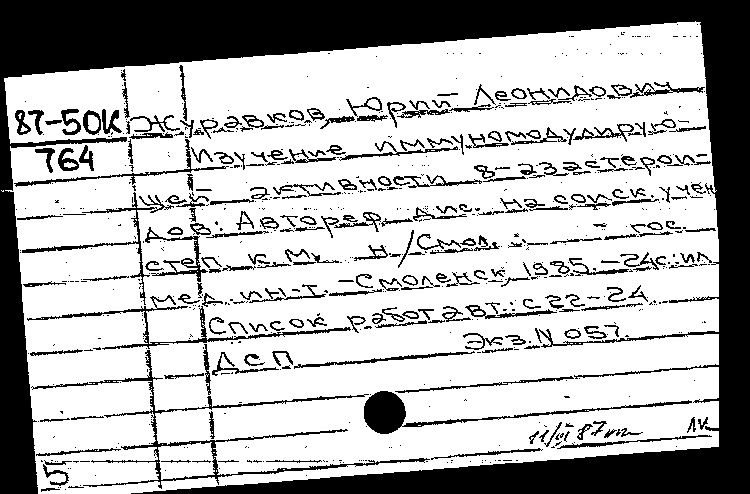 87-50К Журавков, Юрий Леонидович
764 Изучение иммуномодулирую-
щей активности 8-азастерои-
дов: Автореф. дис. на соиск. учен
степ. к.м. н/Смол. : - гос.
мед. ин-т. -Смоленск, 1985.-24с.:ил
Список работ авт.: с 22-24.
ДСП Экз. N 057.
11/VI 87 ЛК
5